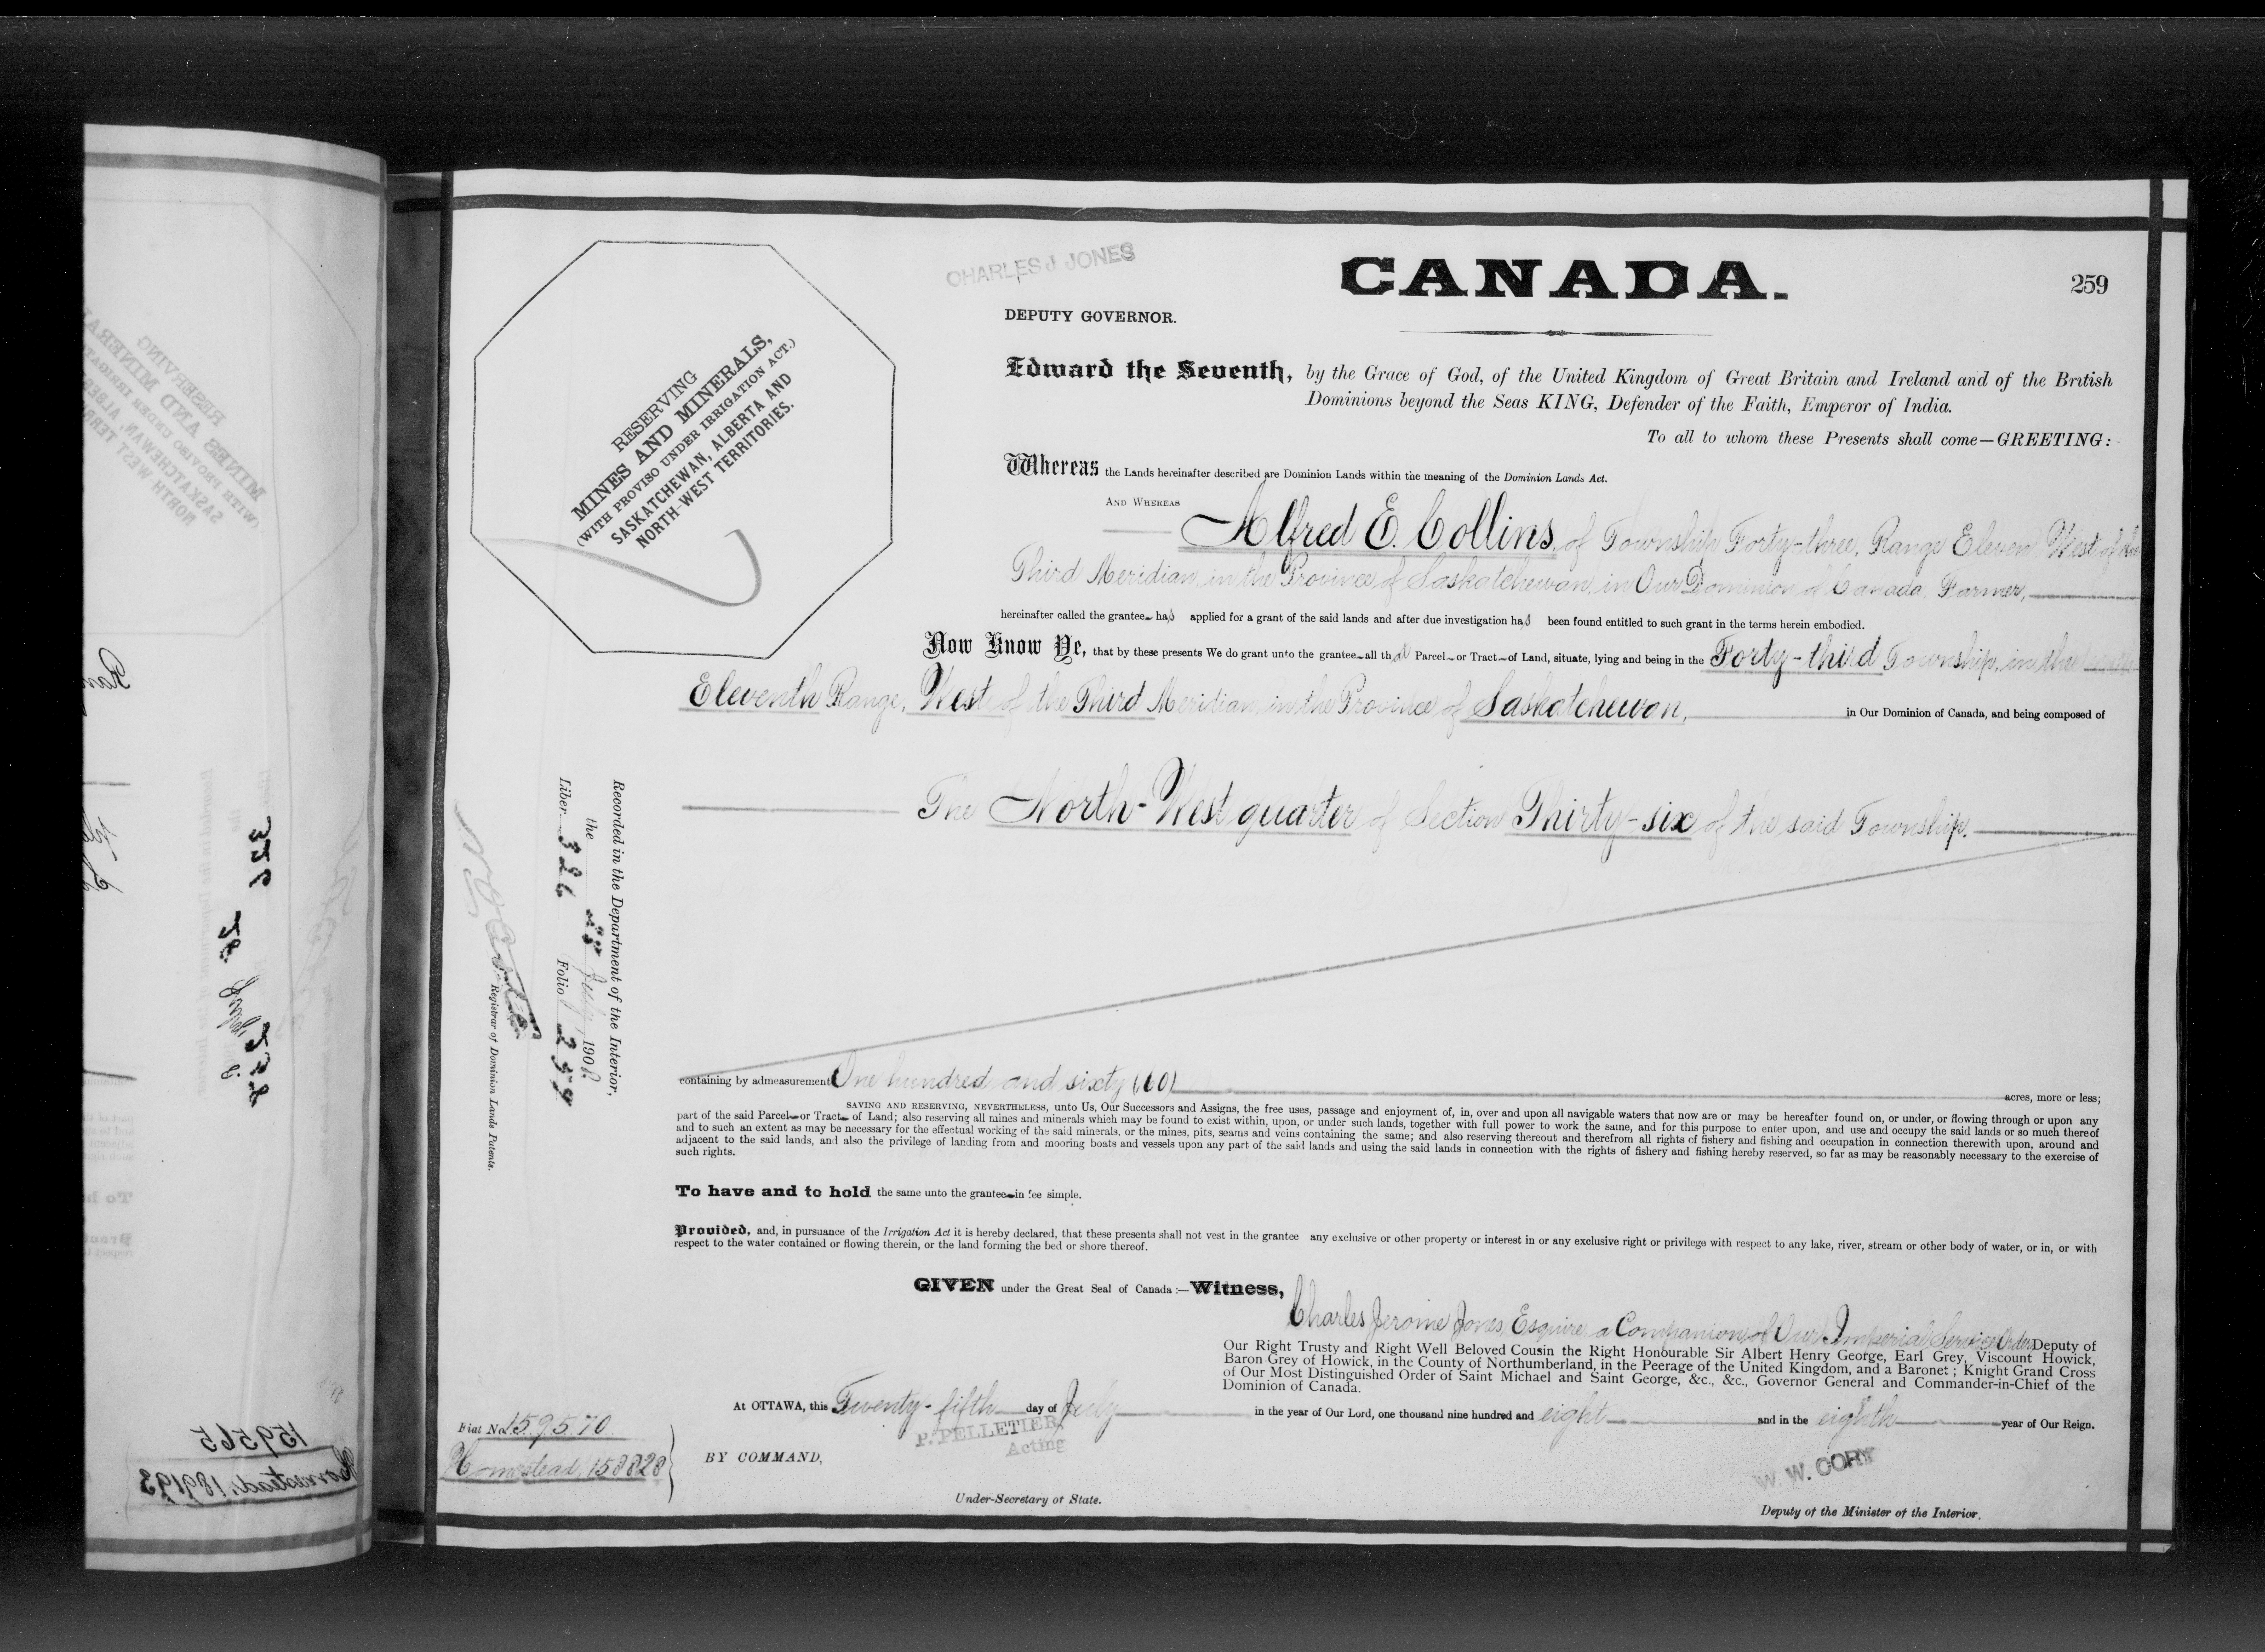 CHARLES J JONES
CANADA.
259
DEPUTY GOVERNOR.
RESERVING
MINES AND MINERALS,
(WITH PROVISO UNDER IRRIGATION ACT.)
SASKATCHEWAN, ALBERTA AND
NORTH-WEST TERRITORIES.
Edward the Seventh, by the Grace of God, of the United Kingdom of Great Britain and Ireland and of the British
Dominions beyond the Seas KING, Defender of the Faith, Emperor of India.
To all to whom these Presents shall come—GREETING:
Whereas the Lands hereinafter described are Dominion Lands within the meaning of the Dominion Lands Act.
AND WHEREAS Alfred E. Collins, of Township Forty-three, Range Eleven West of the
Third Meridian, in the Province of Saskatchewan, in Our Dominion of Canada, Farmer,
hereinafter called the grantee has applied for a grant of the said lands and after due investigation has been found entitled to such grant in the terms herein embodied.
Now Know Ye, that by these presents We do grant unto the grantee all that Parcel or Tract of Land, situate, lying and being in the Forty-third Township, in the
Eleventh Range, West of the Third Meridian in the Province of Saskatchewan, in Our Dominion of Canada, and being composed of
The North-West quarter of Section Thirty-six of the said Township.
Recorded in the Department of the Interior,
the 28 July 1908
Liber 326 Folio 259
Registrar of Dominion Lands Patents.
containing by admeasurement One hundred and sixty (160) acres, more or less;
SAVING AND RESERVING, NEVERTHELESS, unto Us, Our Successors and Assigns, the free uses, passage and enjoyment of, in, over and upon all navigable waters that now are or may be hereafter found on, or under, or flowing through or upon any
part of the said Parcel or Tract of Land; also reserving all mines and minerals which may be found to exist within, upon, or under such lands, together with full power to work the same, and for this purpose to enter upon, and use and occupy the said lands or so much thereof
and to such an extent as may be necessary for the effectual working of the said minerals, or the mines, pits, seams and veins containing the same; and also reserving thereout and therefrom all rights of fishery and fishing and occupation in connection therewith upon, around and
adjacent to the said lands, and also the privilege of landing from and mooring boats and vessels upon any part of the said lands and using the said lands in connection with the rights of fishery and fishing hereby reserved, so far as may be reasonably necessary to the exercise of
such rights.
To have and to hold the same unto the grantee in fee simple.
Provided, and, in pursuance of the Irrigation Act it is hereby declared, that these presents shall not vest in the grantee any exclusive or other property or interest in or any exclusive right or privilege with respect to any lake, river, stream or other body of water, or in, or with
respect to the water contained or flowing therein, or the land forming the bed or shore thereof.
GIVEN under the Great Seal of Canada:—Witness,
Charles Jerome Jones, Esquire a Companion of Our Imperial Service Order, Deputy of
Our Right Trusty and Right Well Beloved Cousin the Right Honourable Sir Albert Henry George, Earl Grey, Viscount Howick,
Baron Grey of Howick, in the County of Northumberland, in the Peerage of the United Kingdom, and a Baronet; Knight Grand Cross
of Our Most Distinguished Order of Saint Michael and Saint George, &c., &c., Governor General and Commander-in-Chief of the
Dominion of Canada.
At OTTAWA, this Twenty-fifth day of July in the year of Our Lord, one thousand nine hundred and eight and in the eighth year of Our Reign.
P. PELLETIER
Acting
Fiat No. 159570
Homestead, 158828
BY COMMAND,
W. W. CORY
Under-Secretary of State.
Deputy of the Minister of the Interior.
326
28 July
258
159565
Homestead, 189193